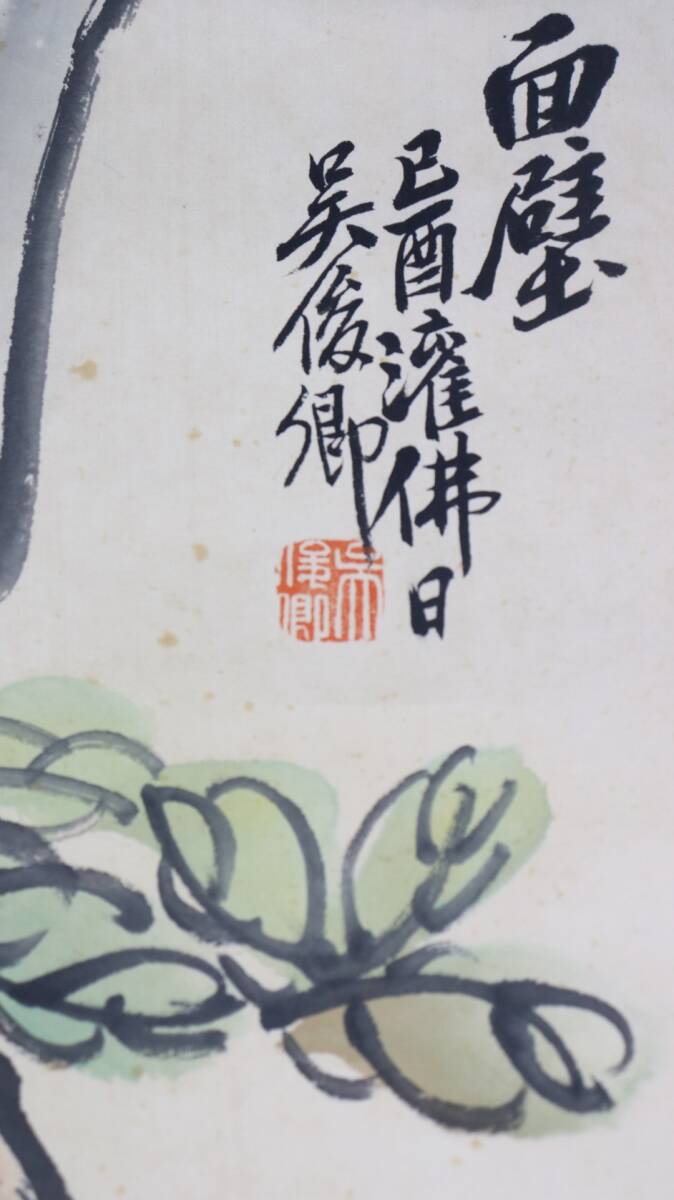 面壁
己酉灌佛日
吳俊卿
吳俊卿